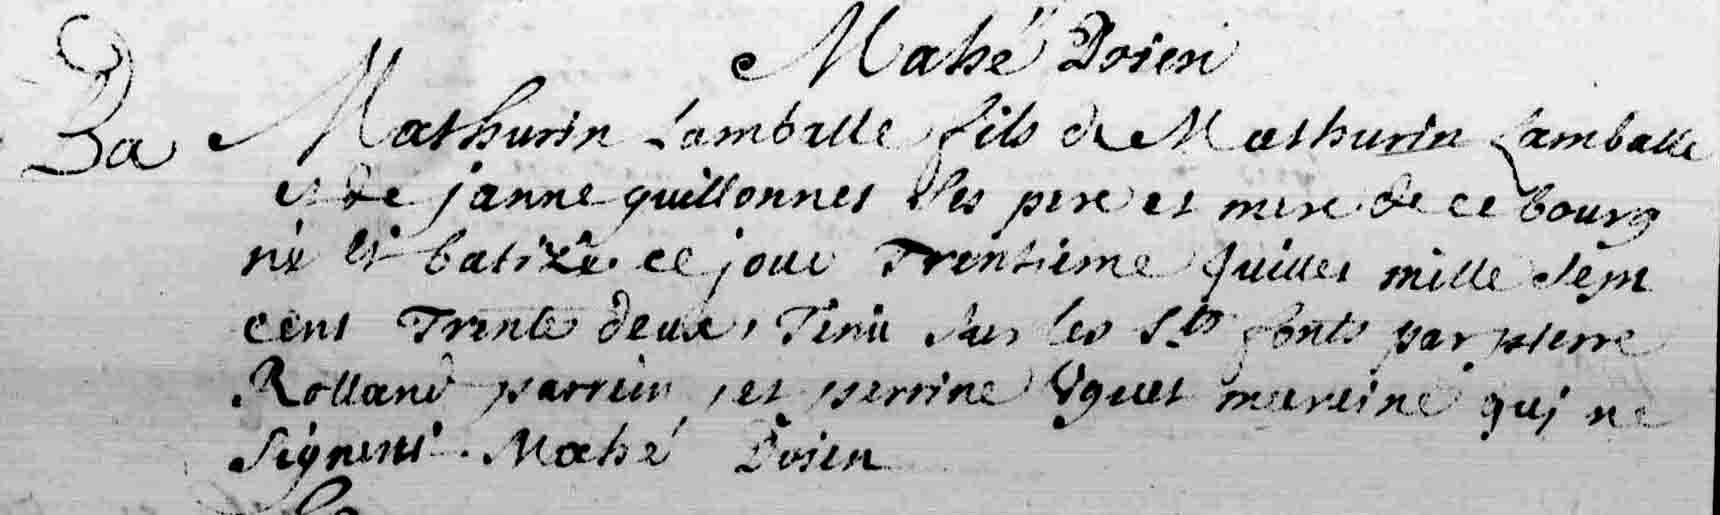 Mahé Doien
Ba Mathurin Lamballe fils de Mathurin Lamballe
et de janne guillonnet ses pere et mere de ce bourg
né et batizé ce jour Trentieme Juillet mille sept
cent Trente deux, Tenu sur les Sts fonts par pierre
Rolland parrein, et perrine Uguet mareine quj ne
signent. Mahé Doien